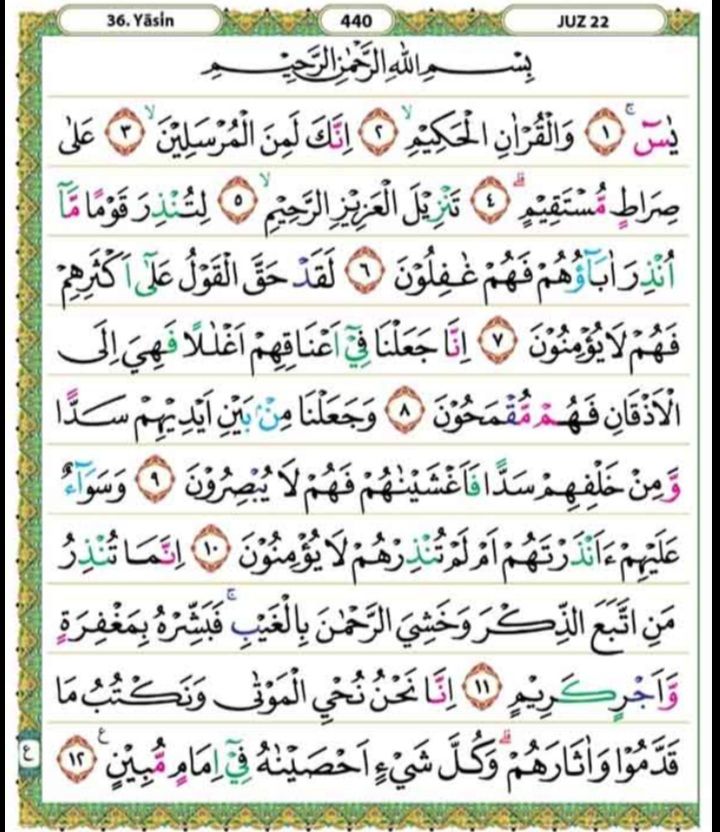 36. Yāsin 440 JUZ 22
بِسْمِ اللّٰهِ الرَّحْمٰنِ الرَّحِيْمِ
يٰسۤ ۚ ١ وَالْقُرْاٰنِ الْحَكِيْمِۙ ٢ اِنَّكَ لَمِنَ الْمُرْسَلِيْنَۙ ٣ عَلٰى
صِرَاطٍ مُّسْتَقِيْمٍۗ ٤ تَنْزِيْلَ الْعَزِيْزِ الرَّحِيْمِۙ ٥ لِتُنْذِرَ قَوْمًا مَّآ
اُنْذِرَ اٰبَاۤؤُهُمْ فَهُمْ غٰفِلُوْنَ ٦ لَقَدْ حَقَّ الْقَوْلُ عَلٰٓى اَكْثَرِهِمْ
فَهُمْ لَا يُؤْمِنُوْنَ ٧ اِنَّا جَعَلْنَا فِيْٓ اَعْنَاقِهِمْ اَغْلٰلًا فَهِيَ اِلَى
الْاَذْقَانِ فَهُمْ مُّقْمَحُوْنَ ٨ وَجَعَلْنَا مِنْۢ بَيْنِ اَيْدِيْهِمْ سَدًّا
وَّمِنْ خَلْفِهِمْ سَدًّا فَاَغْشَيْنٰهُمْ فَهُمْ لَا يُبْصِرُوْنَ ٩ وَسَوَاۤءٌ
عَلَيْهِمْ ءَاَنْذَرْتَهُمْ اَمْ لَمْ تُنْذِرْهُمْ لَا يُؤْمِنُوْنَ ١٠ اِنَّمَا تُنْذِرُ
مَنِ اتَّبَعَ الذِّكْرَ وَخَشِيَ الرَّحْمٰنَ بِالْغَيْبِۚ فَبَشِّرْهُ بِمَغْفِرَةٍ
وَّاَجْرٍ كَرِيْمٍ ١١ اِنَّا نَحْنُ نُحْيِ الْمَوْتٰى وَنَكْتُبُ مَا
قَدَّمُوْا وَاٰثَارَهُمْۗ وَكُلَّ شَيْءٍ اَحْصَيْنٰهُ فِيْٓ اِمَامٍ مُّبِيْنٍ ࣖ ١٢
ع